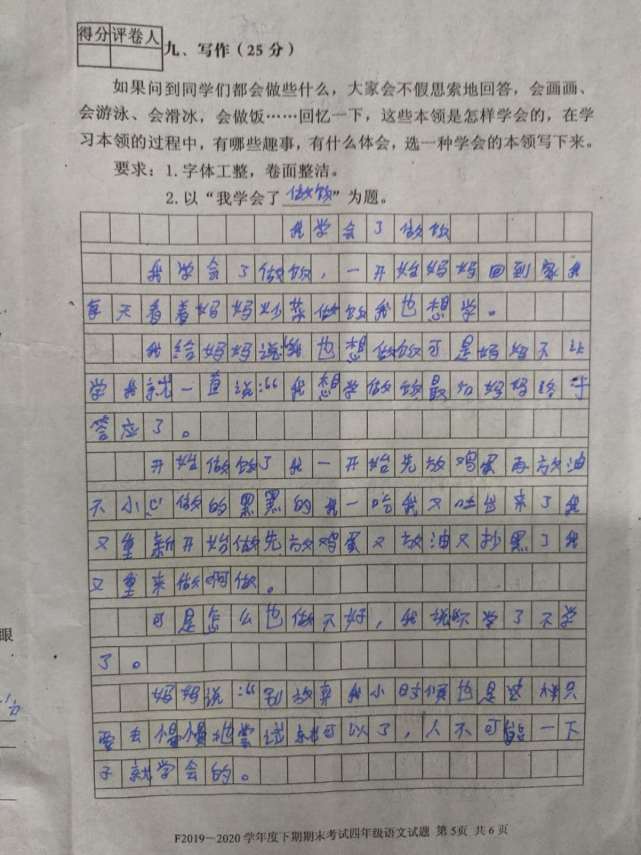 得分 评卷人
九、写作（25分）
如果问到同学们都会做些什么，大家会不假思索地回答，会画画、
会游泳、会滑冰，会做饭……回忆一下，这些本领是怎样学会的，在学
习本领的过程中，有哪些趣事，有什么体会，选一种学会的本领写下来。
要求：1.字体工整，卷面整洁。
2.以“我学会了做饭”为题。
我学会了做饭
我学会了做饭，一开始妈妈回到家我
每天看着妈妈炒菜做饭我也想学。
我给妈妈说我也想做饭可是妈妈不让
学我就一直说：“我想学做饭最后妈妈终于
答应了。
开始做饭了我一开始先放鸡蛋再放油
不小心做的黑黑的我一吃我又吐出来了我
又重新开始做先放鸡蛋又放油又炒黑了我
又重来做啊做。
可是怎么也做不好，我说不学了不学
了。
妈妈说：“别放弃我小时候也是这样只
要去慢慢地尝试就可以了，人不可能一下
子就学会的。
眼
F2019—2020学年度下期期末考试四年级语文试题 第5页 共6页